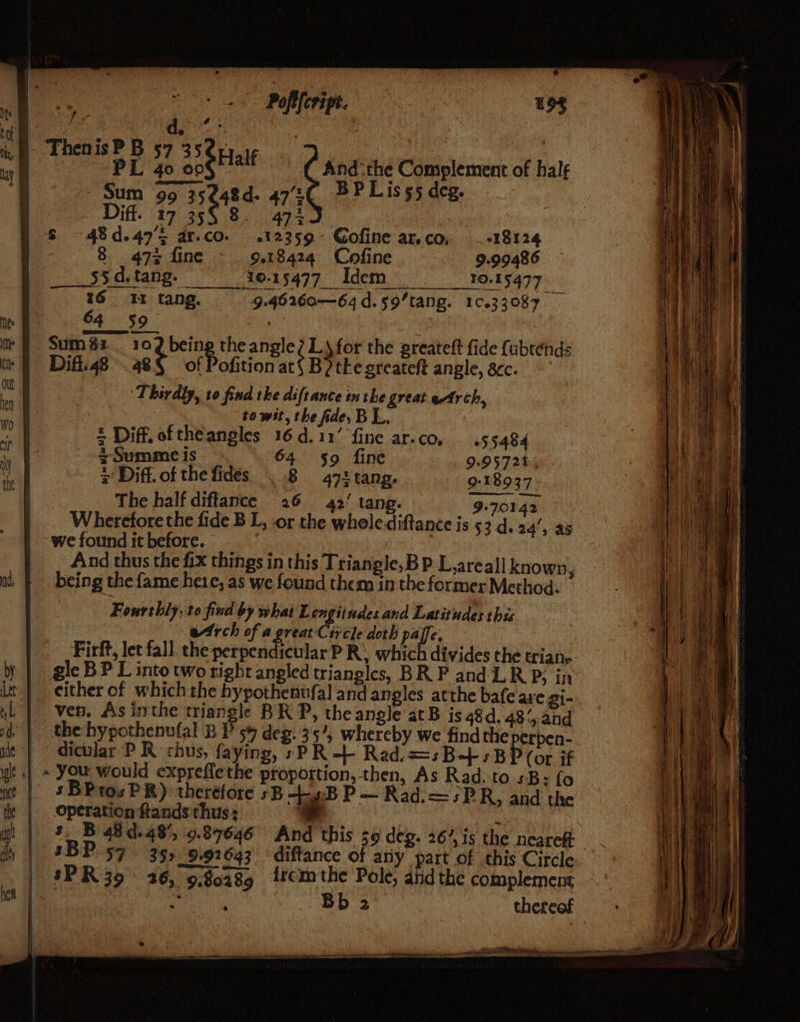 Poſtſcript. 195
d.
Then is P B 57 35 Half And the Complement of half
PL 40 00
Sum 99 35 48d. 47'½ B P L is 55 deg.
Diff. 17 35 8. 47½
s 48 d. 47'½ ar.co. .12359 Coſine ar. co. .18124
8 47½ ſine 9.18424 Coſine 9.99486
55 d. tang. 10.15477 Idem 10.15477
16 11 tang. 9.46260—64 d. 59' tang. 10.33087
64 59
Sum 81 10 being the angle L for the greateſt ſide ſubtends
Diff. 48 48 of Poſition at B the greateſt angle, &c.
Thirdly, to find the diſtance in the great Arch,
to wit, the ſide, B L.
½ Diff. of the angles 16 d. 11' ſine ar. co. .55484
½ Summe is 64 59 ſine 9.95728
½ Diff. of the ſides 8 47½ tang. 9.18937
The half diſtance 26 42' tang. 9.70142
Wherefore the ſide B L, or the whole diſtance is 53 d. 24', as
we found it before.
And thus the ſix things in this Triangle, B P L, are all known,
being the ſame here, as we found them in the former Method.
Fourthly, to find by what Longitudes and Latitudes this
Arch of a great Circle doth paſſe.
Firſt, let fall the perpendicular P R, which divides the trian-
gle B P L into two right angled triangles, B R P and L R P, in
either of which the hypothenuſal and angles at the baſe are gi-
ven. As in the triangle B R P, the angle at B is 48d. 48', and
the hypothenuſal B P 57 deg. 35', whereby we find the perpen-
dicular P R thus, ſaying, sP R + Rad. = s B + s B P (or if
you would expreſſe the proportion, then, As Rad. to sB: ſo
s B P to s P R) therefore s B + s B P — Rad. = s P R, and the
operation ſtands thus:
s. B 48 d. 48', 9.87646 And this 39 deg. 26', is the neareſt
sBP 57 35, 9.92643 diſtance of any part of this Circle
sPR 39 26, 9.80289 from the Pole, and the complement
Bb 2 thereof